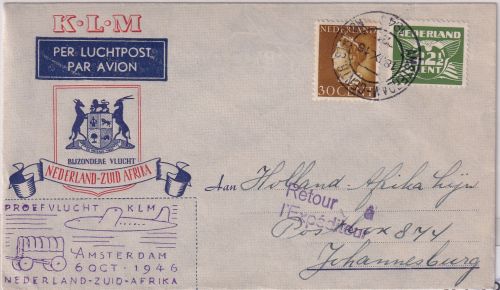 K·L·M
PER LUCHTPOST
PAR AVION
BIJZONDERE VLUCHT
NEDERLAND-ZUID AFRIKA
PROEFVLUCHT KLM
AMSTERDAM
6 OCT. 1946
NEDERLAND-ZUID-AFRIKA
NEDERLAND
30 CENT
NEDERLAND
2½
CENT
Aan Holland-Afrika Lijn
Retour à
l'Expéditeur
Postbox 874
Johannesburg